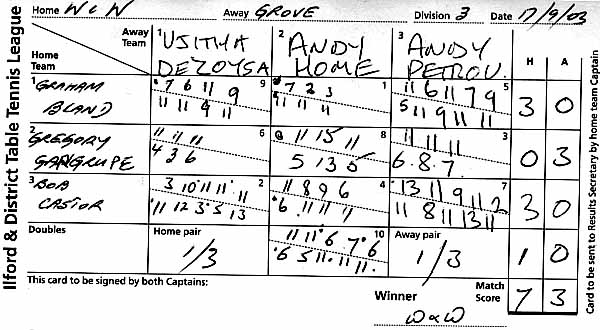 Ilford & District Table Tennis League
Home WCW Away GROVE Division 3 Date 17/9/03
Away Team
Home Team
1 VJITHA DEZOYSA
2 ANDY HOME
3 ANDY PETROV.
H A
1 GRAHAM BLAND
7 6 11 9 9
11 11 9 11
7 2 3 1
11 11 4
11 6 11 7 9 5
5 11 9 11 11
3 0
2 GREGORY
11 11 11 6
4 3 6
11 15 11 8
5 13 5
11 11 11 3
6.8.7
0 3
3 BOB CASTOR
3 10 11 11 11 2
11 12 3 5 13
11 8 9 6 4
6 11 11 11
13 11 9 11 2 7
11 8 11 13 11
3 0
Doubles
Home pair
1/3
11 11 6 7 6 10
6 5 11 11 11
Away pair
1/3
1 0
This card to be signed by both Captains:
Winner
WaW
Match Score
7 3
Card to be sent to Results Secretary by home team Captain